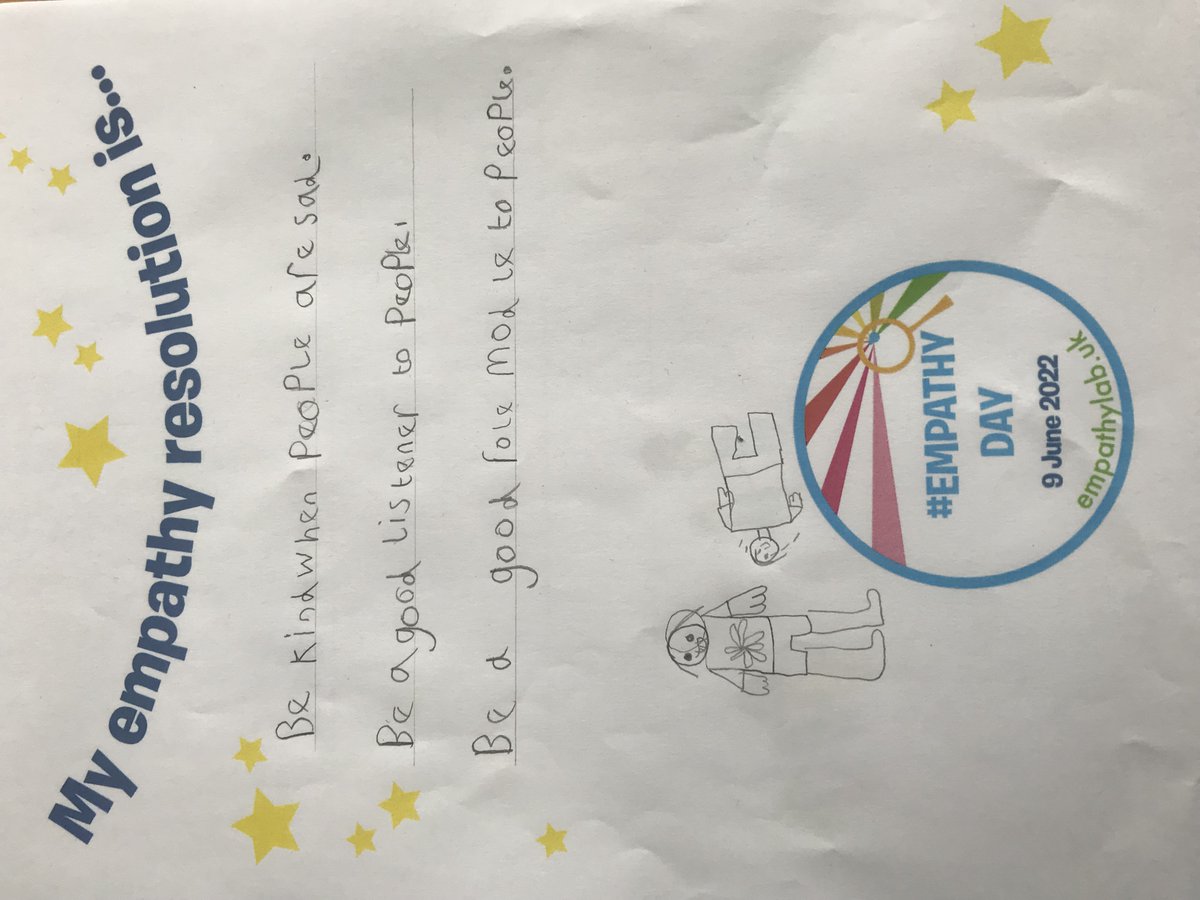 My empathy resolution is...
Be kind when people are sad.
Be a good listener to people.
Be a good role model to people.
#EMPATHY
DAY
9 June 2022
empathylab.uk